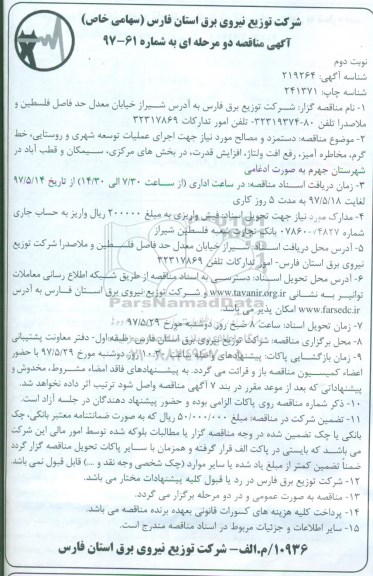 شرکت توزیع نیروی برق استان فارس (سهامی خاص)
آگهی مناقصه دو مرحله ای به شماره ۶۱-۹۷
نوبت دوم
شناسه آگهی: ۲۱۹۲۶۴
شناسه چاپ: ۲۴۱۳۷۱
۱- نام مناقصه گزار: شرکت توزیع برق فارس به آدرس شیراز خیابان معدل حد فاصل فلسطین و
ملاصدرا تلفن ۸۰-۳۲۳۱۹۳۷۴- تلفن امور تدارکات ۳۲۳۱۷۸۶۹
۲- موضوع مناقصه: دستمزد و مصالح مورد نیاز جهت اجرای عملیات توسعه شهری و روستایی، خط
گرم، مخاطره آمیز، رفع افت ولتاژ، افزایش قدرت، در بخش های مرکزی، سیمکان و قطب آباد در
شهرستان جهرم به صورت ادغامی
۳- زمان دریافت اسناد مناقصه: در ساعت اداری (از ساعت ۷/۳۰ الی ۱۴/۳۰) از تاریخ ۹۷/۵/۱۴
لغایت ۹۷/۵/۱۸ به مدت ۵ روز کاری
۴- مدارک مورد نیاز جهت تحویل اسناد: فیش واریزی به مبلغ ۲۰۰۰۰۰ ریال واریز به حساب جاری
شماره بانک تجارت شعبه فلسطین شیراز
۵- آدرس محل دریافت اسناد: شیراز خیابان معدل حد فاصل فلسطین و ملاصدرا شرکت توزیع
نیروی برق استان فارس- امور تدارکات تلفن ۳۲۳۱۷۸۶۹
۶- آدرس محل تحویل اسناد: دسترسی به اسناد مناقصه از طریق شبکه اطلاع رسانی معاملات
توانیر به نشانی www.tavanir.org.ir و شرکت توزیع نیروی برق استان فارس به آدرس
www.farsedc.ir امکان پذیر می باشد.
۷- زمان تحویل اسناد: ساعت ۸ صبح روز دوشنبه مورخ ۹۷/۵/۲۹
۸- محل برگزاری مناقصه: شرکت توزیع نیروی برق استان فارس- طبقه اول- دفتر معاونت پشتیبانی
۹- زمان بازگشایی پاکات: پیشنهادهای واصله ساعت ۱۰:۳۰ روز دوشنبه مورخ ۹۷/۵/۲۹ با حضور
اعضاء کمیسیون مناقصه باز و قرائت می گردد. به پیشنهادهای فاقد امضاء مشروط، مخدوش و
پیشنهاداتی که بعد از موعد مقرر در بند ۷ آگهی مناقصه واصل شود ترتیب اثر داده نخواهد شد.
۱۰- ذکر شماره مناقصه روی پاکات الزامی بوده و حضور پیشنهاد دهندگان در جلسه آزاد است.
۱۱- تضمین شرکت در مناقصه: مبلغ ۵۰/۰۰۰/۰۰۰ ریال که به صورت ضمانتنامه معتبر بانکی، چک
بانکی یا چک تضمین شده در وجه مناقصه گزار یا مطالبات بلوکه شده توسط امور مالی این شرکت
می باشد که بایستی در پاکت الف قرار گرفته و همزمان با سایر پاکات تحویل مناقصه گزار گردد
ضمناً تضمین کمتر از مبلغ یاد شده یا سایر موارد (چک شخصی وجه نقد و ...) قابل قبول نمی باشد
۱۲- شرکت توزیع برق فارس در رد یا قبول کلیه پیشنهادات مختار می باشد.
۱۳- مناقصه به صورت عمومی و در دو مرحله برگزار می گردد.
۱۴- پرداخت کلیه هزینه های کسورات قانونی بعهده برنده مناقصه می باشد.
۱۵- سایر اطلاعات و جزئیات مربوط در اسناد مناقصه مندرج است.
۱۰۹۳۶/م.الف- شرکت توزیع نیروی برق استان فارس